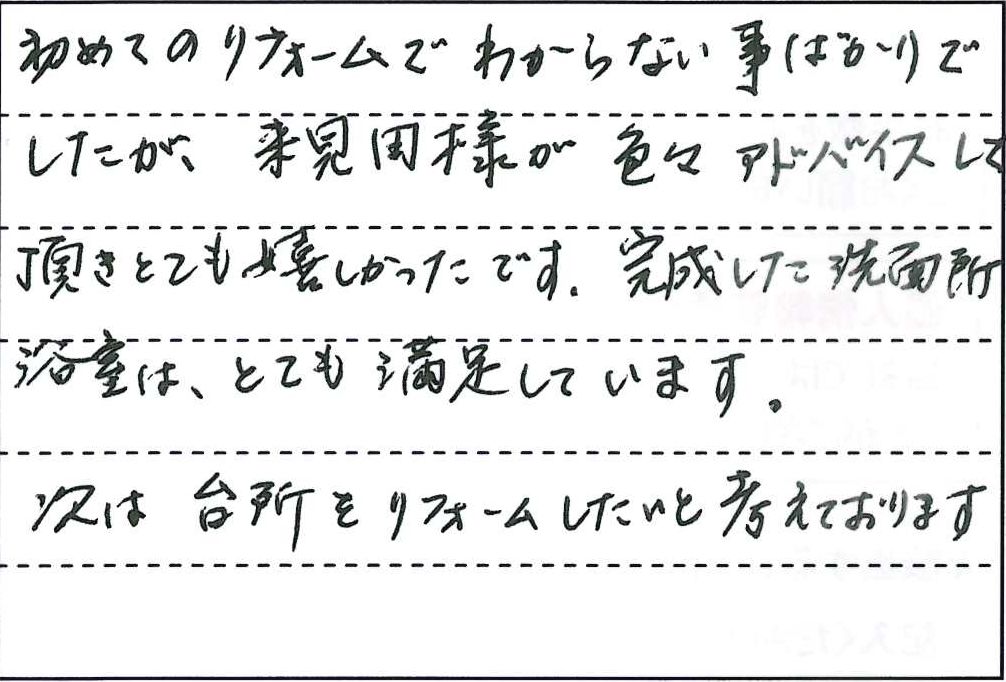 初めてのリフォームでわからない事ばかりで
したが、来見田様が色々アドバイスして
頂きとても嬉しかったです。完成した洗面所
浴室は、とても満足しています。
次は台所をリフォームしたいと考えております